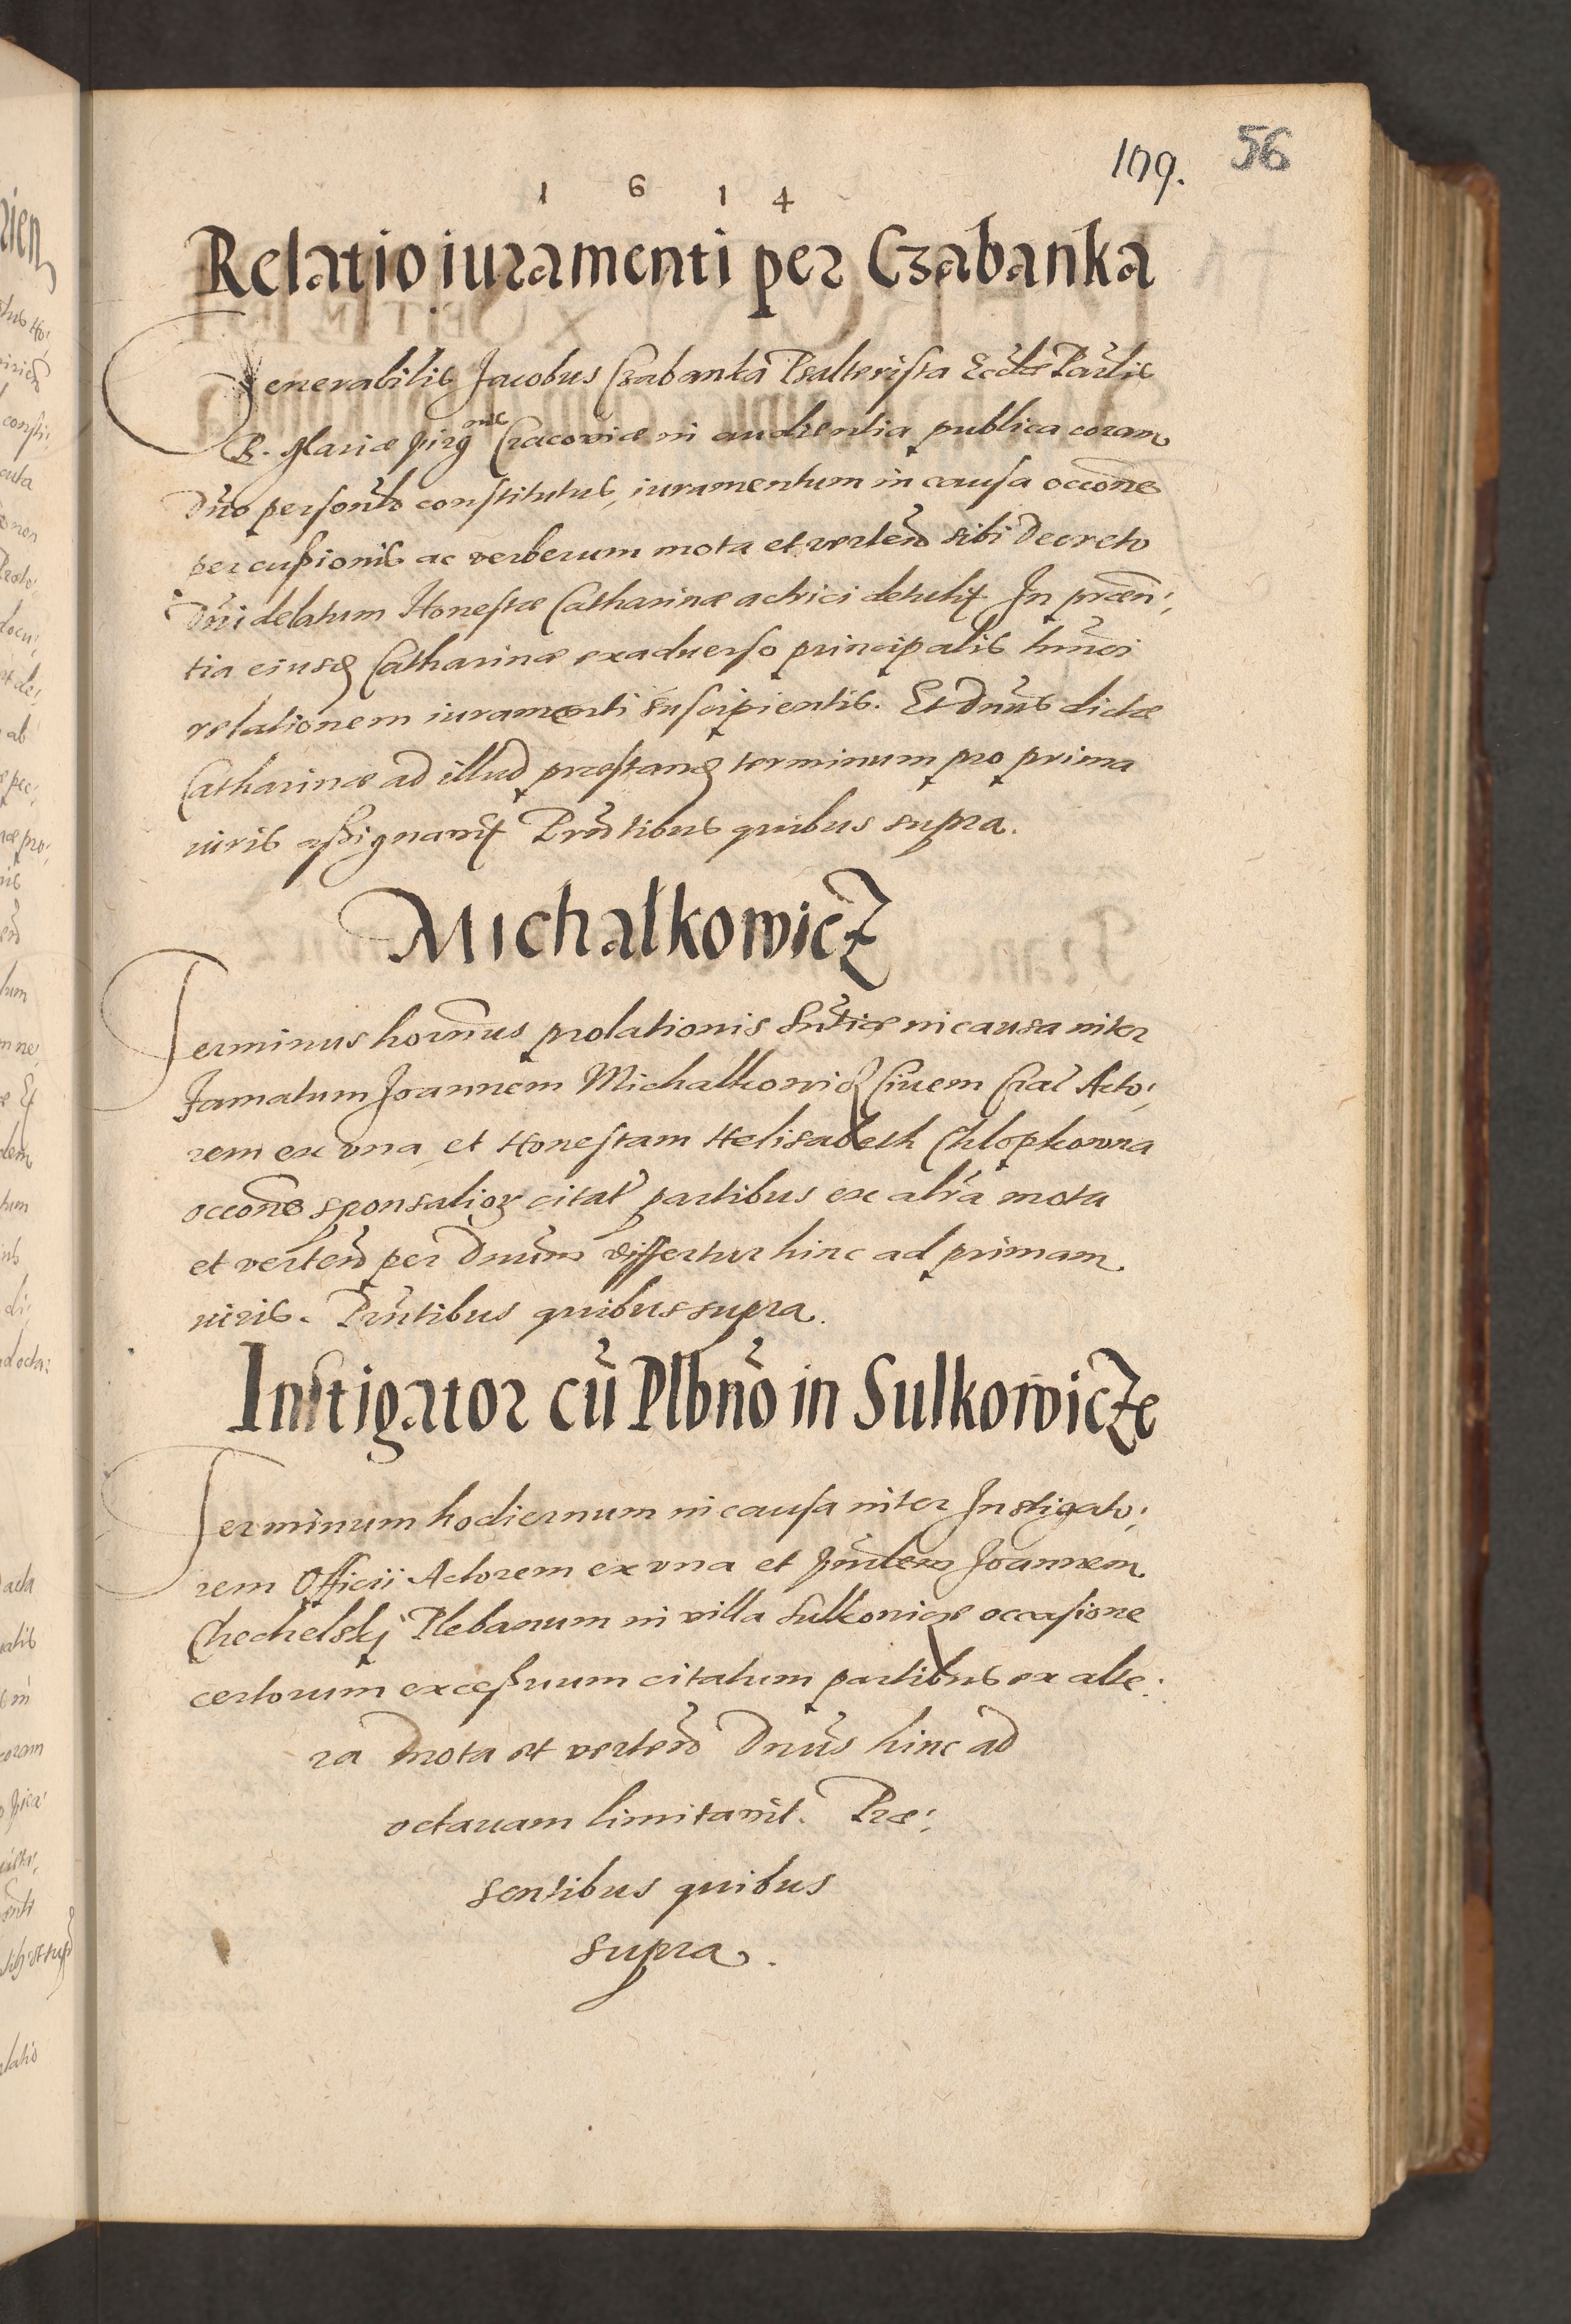 109. 56
1 6 1 4
Relatio iuramenti per Czabanka
Venerabilis Jacobus Czabanka Psalterista Ecclae Parlis
B. Mariae Virg Cracoviae in audientia publica coram
Dno personlr constitutus, iuramentum in causa occone
percussionis ac verberum mota et verteñ sibi Decreto
Dni delatum Honestae Catharinae actrici detulit In præen:,
tia eiusdem Catharinae ex adverso principalis hmoi
relationem iuramenti suscipientis. Et Dnus dictae
Catharinae ad illud præstand terminum pro prima
iuris assignavit Prntibus quibus supra.
Michalkowicz
Terminus hornus prolationis Sntiae in causa inter
Famatum Joannem Michalkowicz Civem Crac Acto:,
rem ex una, et Honestam Helisabeth Chlopkowna
occone sponsalior citat partibus ex altra mota
et verteñ per Dnum differtur hinc ad primam
iuris. Prntibus quibus supra.
Instigator cũ Plbnõ in Sulkowicze
Terminum hodiernum in causa inter Instigato:,
rem Officii Actorem ex una et Joannem
Chechelskj Plebanum in villa Sulkowice occasione
certorum excessuum citatum partibus ex alte:
ra mota et verteñ Dnus hinc ad
octavam limitavit. Præ:,
sentibus quibus
supra.